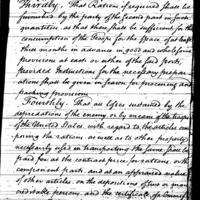 Thirdly, That Rations if required shall be
furnished by the party of the second part in such
quantities, as that there shall be sufficient for the
consumption of the Troops for the space of at least
three months in advance, in good and wholesome
provisions at each or either of the said posts,
provided Instructions for the necessary prepara
tions shall be given in season for procuring and
packing provisions.
Fourthly. That all losses sustained by the
depredations of the enemy, or by means of the troops
of the United States with regard to the articles com
posing the rations as well as to other property
necessarily used in transporting the same shall be
paid for at the contract price for rations, or the
component parts, and at an appraised value
of other articles, on the depositions of two or more
creditable persons, and the certificate of a commis